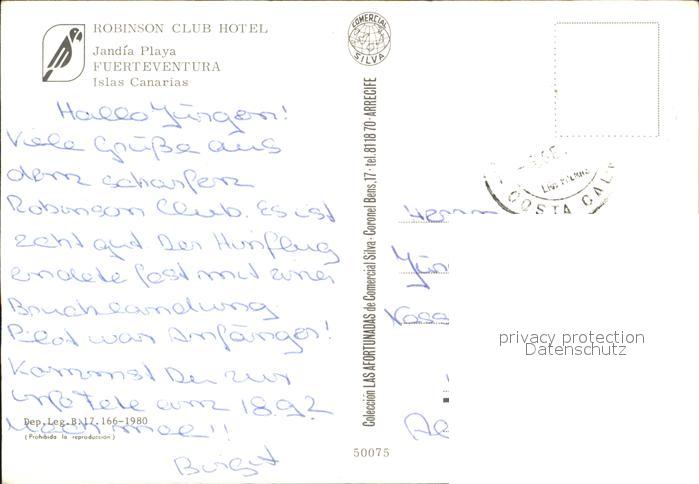 ROBINSON CLUB HOTEL
Jandía Playa
FUERTEVENTURA
Islas Canarias
Hallo Jürgen!
Viele Grüße aus
dem scharfen
Robinson Club. Es ist
echt gut Der Hinflug
endete fast mit einer
Bruchlandung
Pilot war Anfänger!
Kommst Du zur
Fete am 18.9?
Birgit
Dep. Leg. B. 17.166-1980
(Prohibida la reproducción)
COMERCIAL
SILVA
Colección LAS AFORTUNADAS de Comercial Silva · Coronel Bens, 17 · tel. 81 18 70 · ARRECIFE
50075
COSTA CAL
Herrn
Jür
privacy protection
Datenschutz